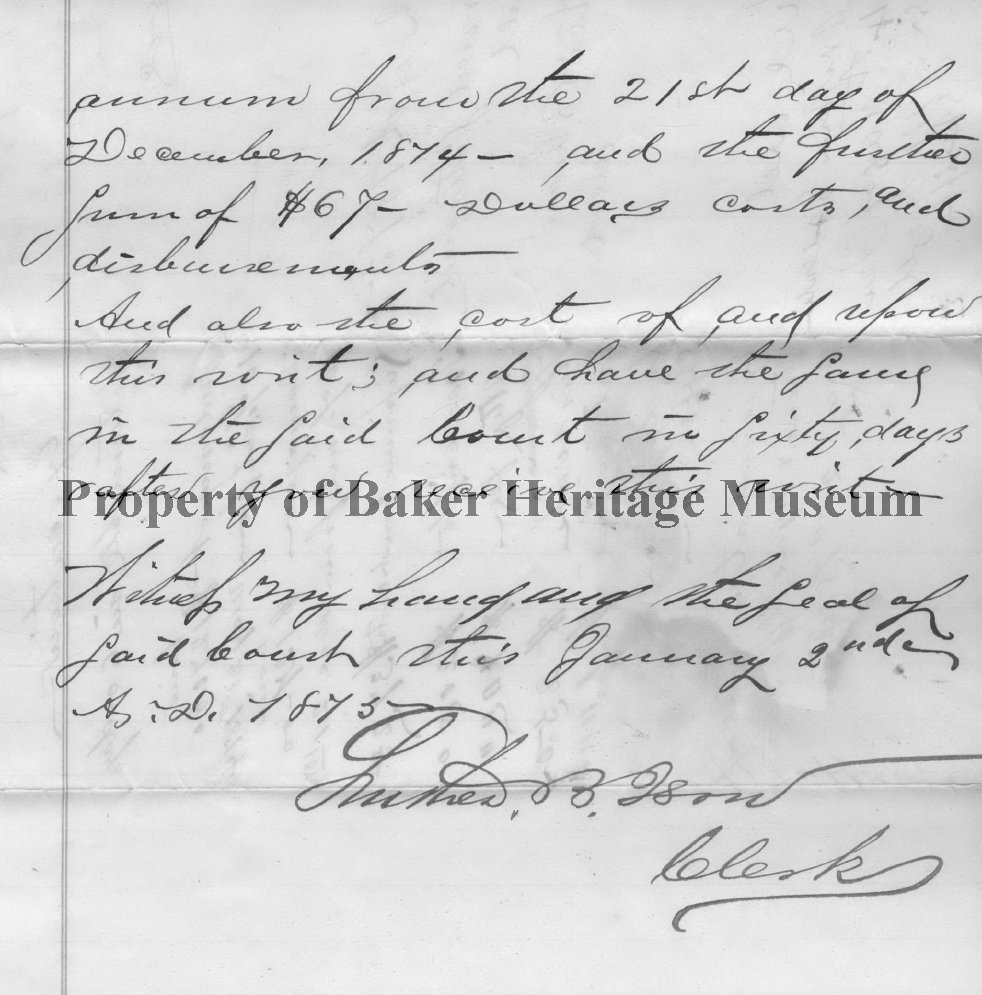 annum from the 21st day of
December, 1874 - and the further
sum of $67- Dollars costs, and
disbursements
And also the cost of and upon
this writ; and have the same
in the said Court in sixty days
after you receive this writ -
Property of Baker Heritage Museum
Witness my hand and the seal of
said Court this January 2nd
A.D. 1875
Luther B. Ison
Clerk